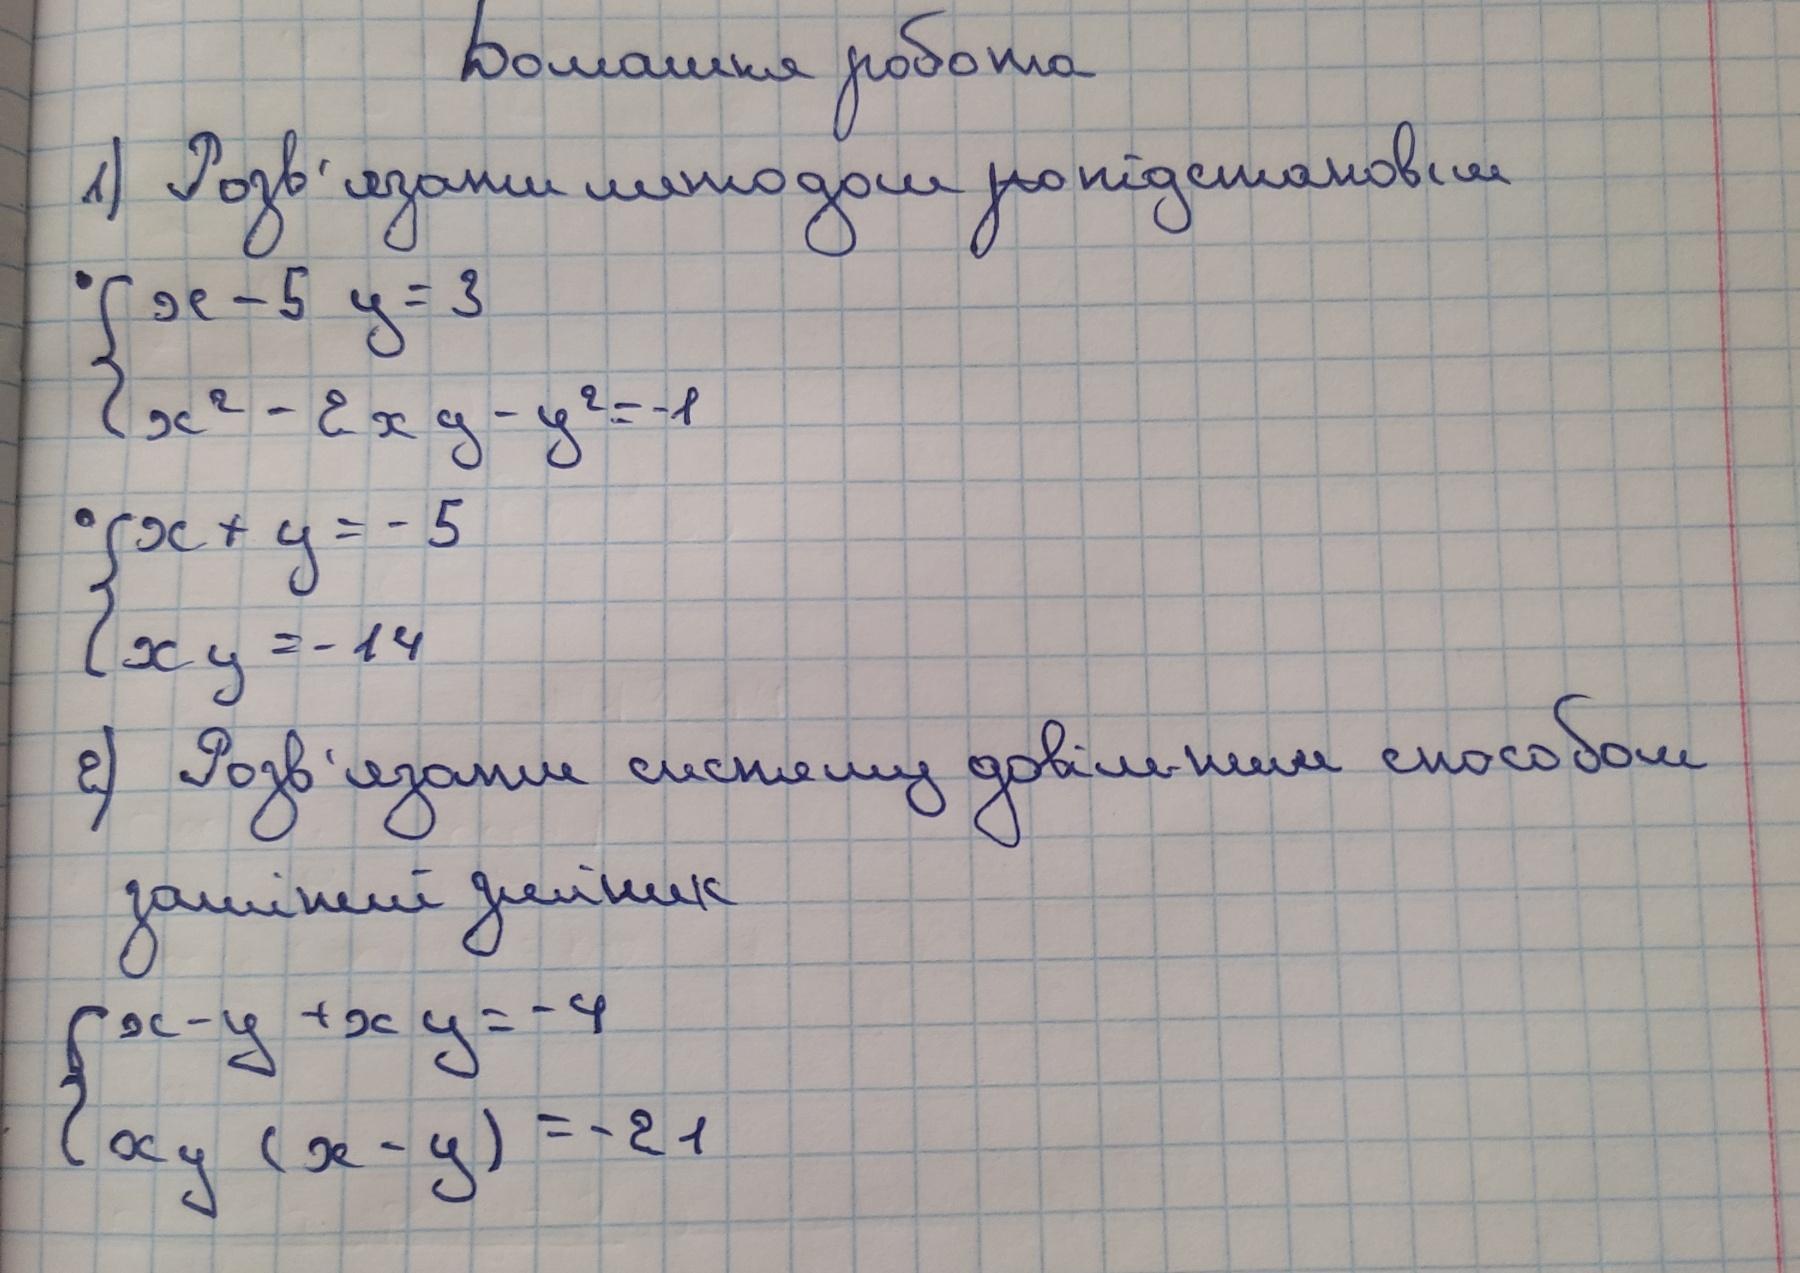 Домашня робота
1) Розв'язати методом підстановки
{x - 5y = 3
x² - 2xy - y² = -1
{x + y = -5
xy = -14
2) Розв'язати систему довільним способом
заміний змінник
{x - y + xy = -4
xy (x - y) = -21